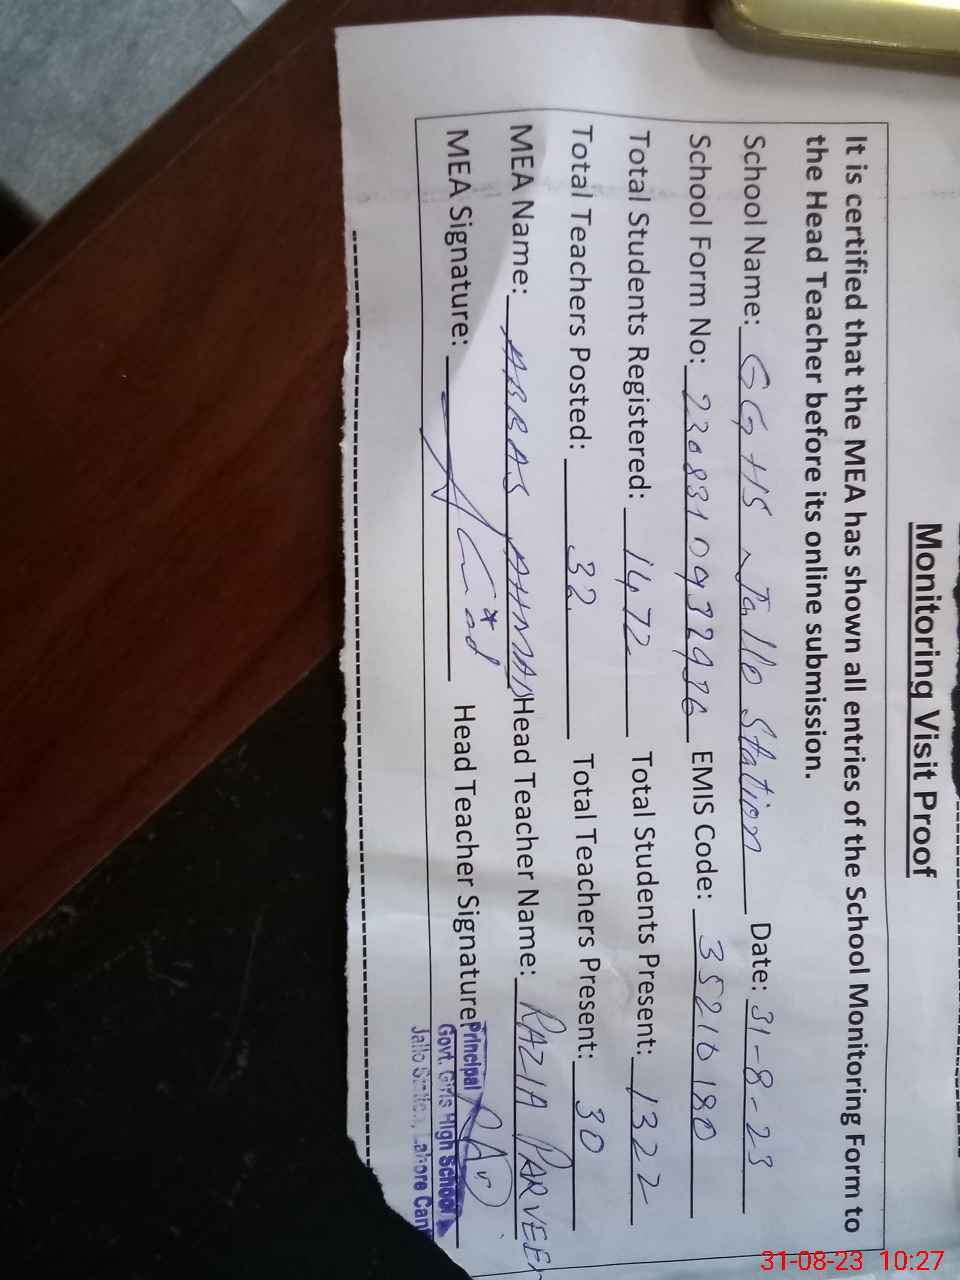 Monitoring Visit Proof
It is certified that the MEA has shown all entries of the School Monitoring Form to
the Head Teacher before its online submission.
School Name: GGHS Jallo Station Date: 31-8-23
School Form No: 2308310932936 EMIS Code: 35210180
Total Students Registered: 1472 Total Students Present: 1322
Total Teachers Posted: 32 Total Teachers Present: 30
MEA Name: ABBAS AHMAD Head Teacher Name: RAZIA PARVEEN
MEA Signature: Head Teacher Signature
Principal
Govt. Girls High School
Jallo Station, Lahore Cantt
31-08-23 10:27